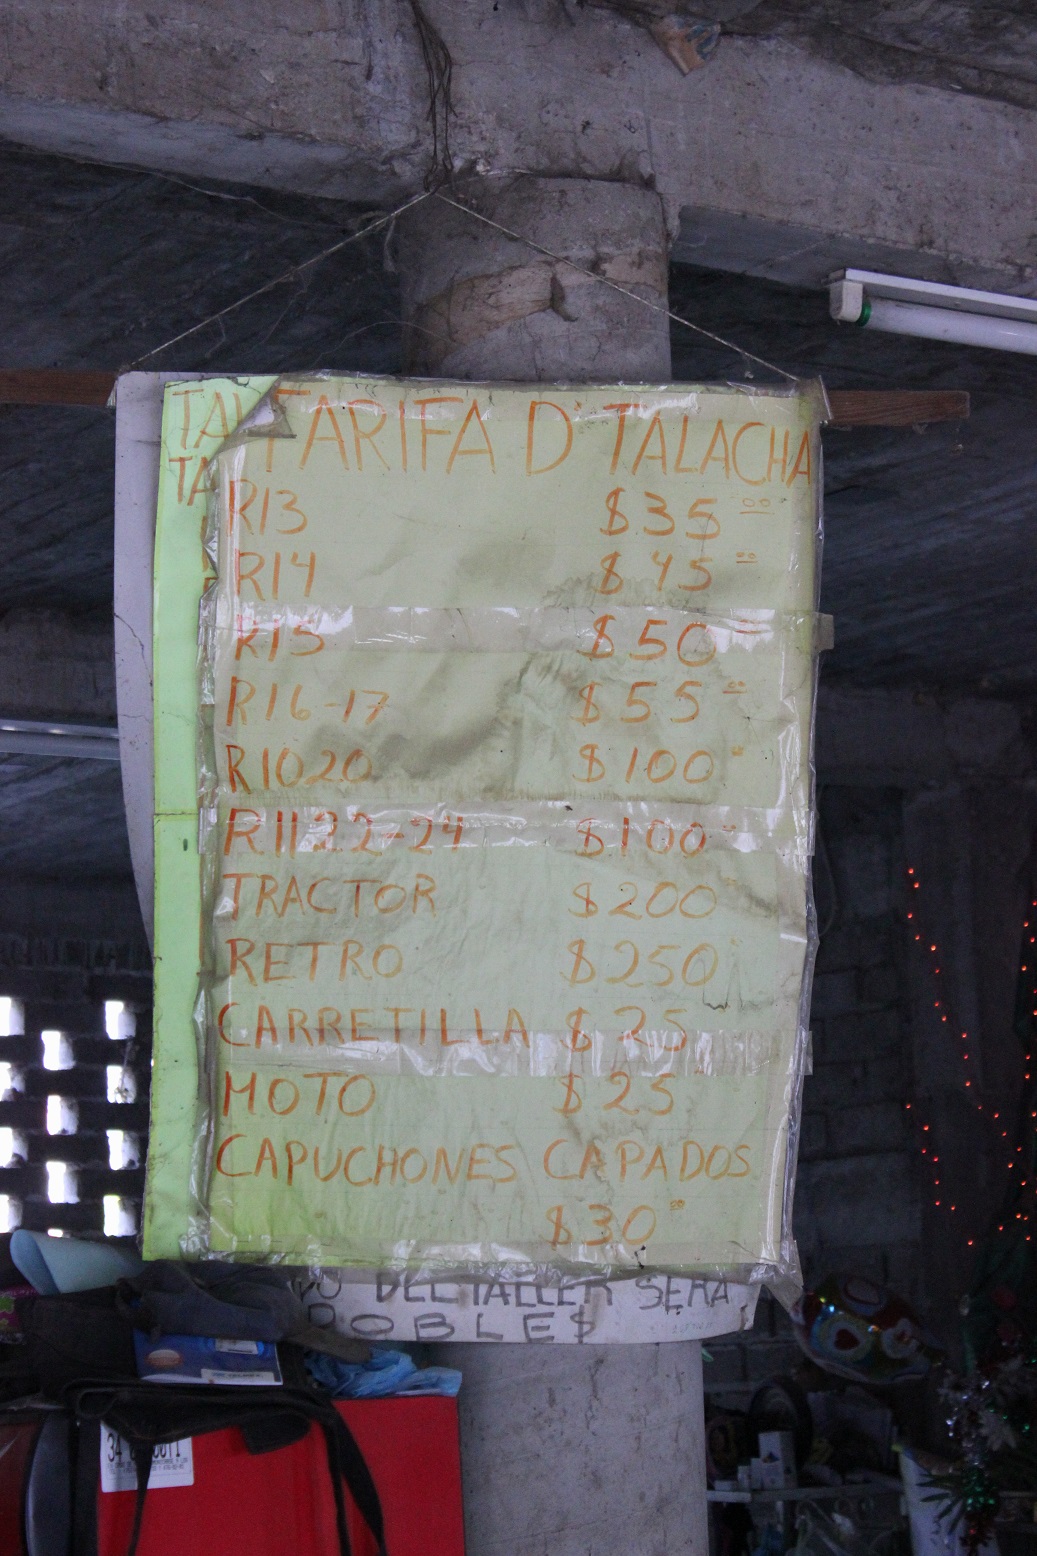 TA TARIFA D' TALACHA
TA
R13 $35.00
R14 $45.00
R15 $50
R16-17 $55.00
R1020 $100
R1122-24 $100
TRACTOR $200
RETRO $250
CARRETILLA $25
MOTO $25
CAPUCHONES CAPADOS
$30
DEL TALLER SERA
DOBLES